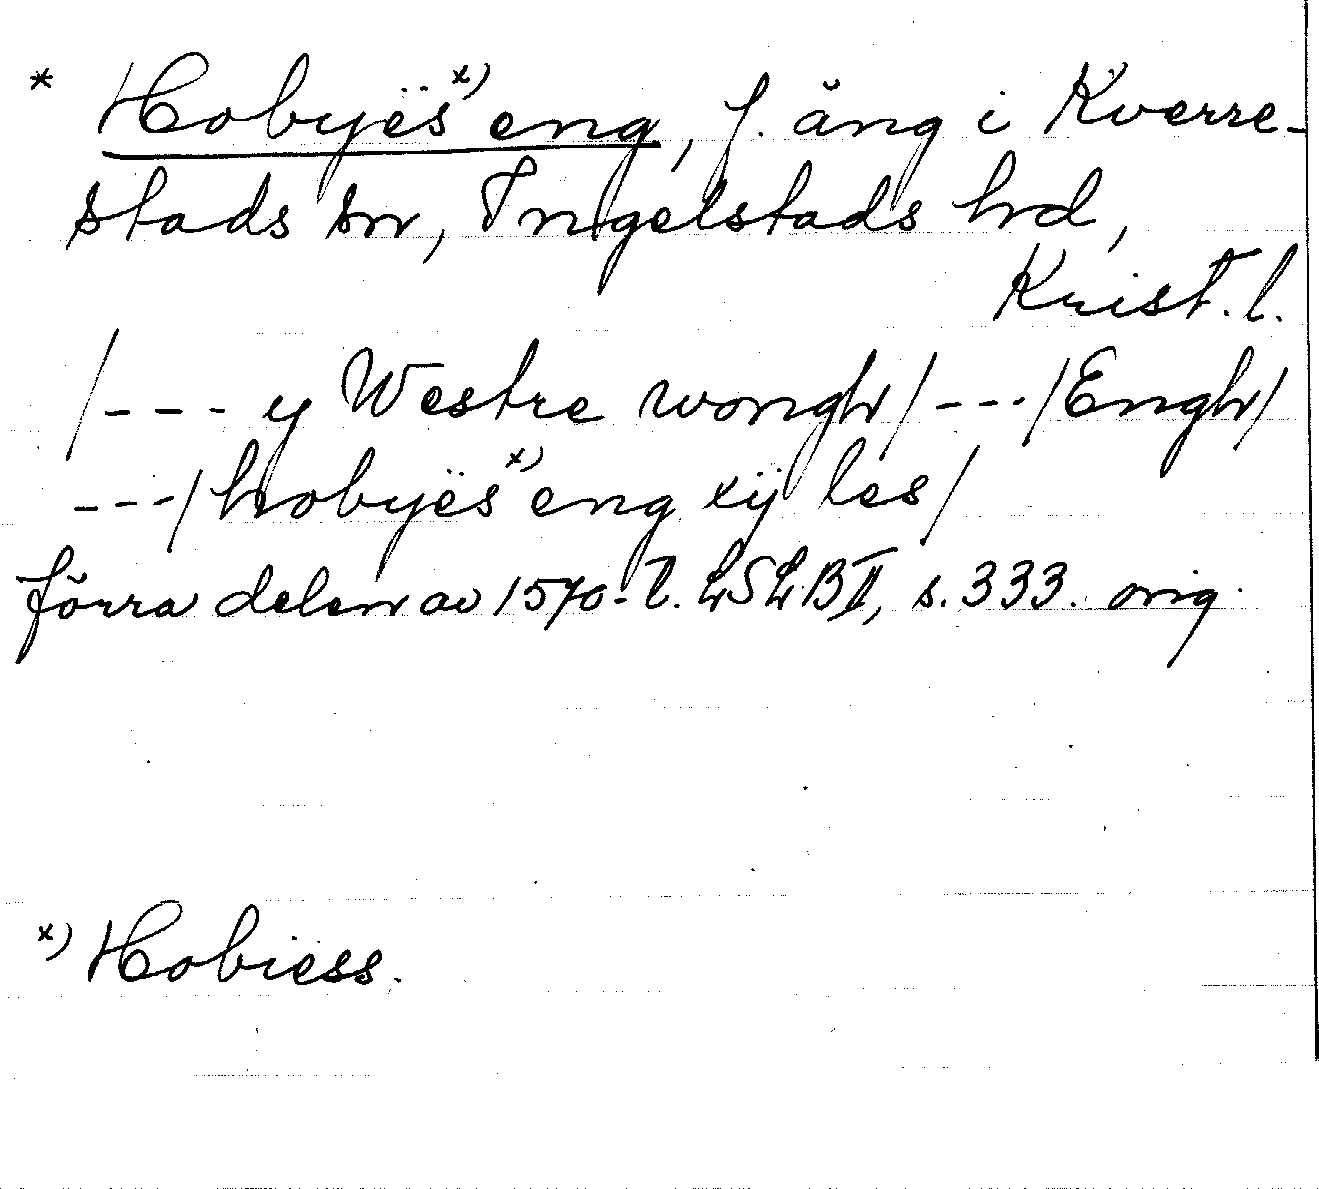 * Hobyës x) eng, f. äng i Kverre-
stads sn, Ingelstads hd,
Krist. l.
/--- y Westre wongh/---/Engh/
---/hobyës x) eng xij les/
förra delen av 1570-t. LSLB II, s. 333. orig.
x) Hobiess.